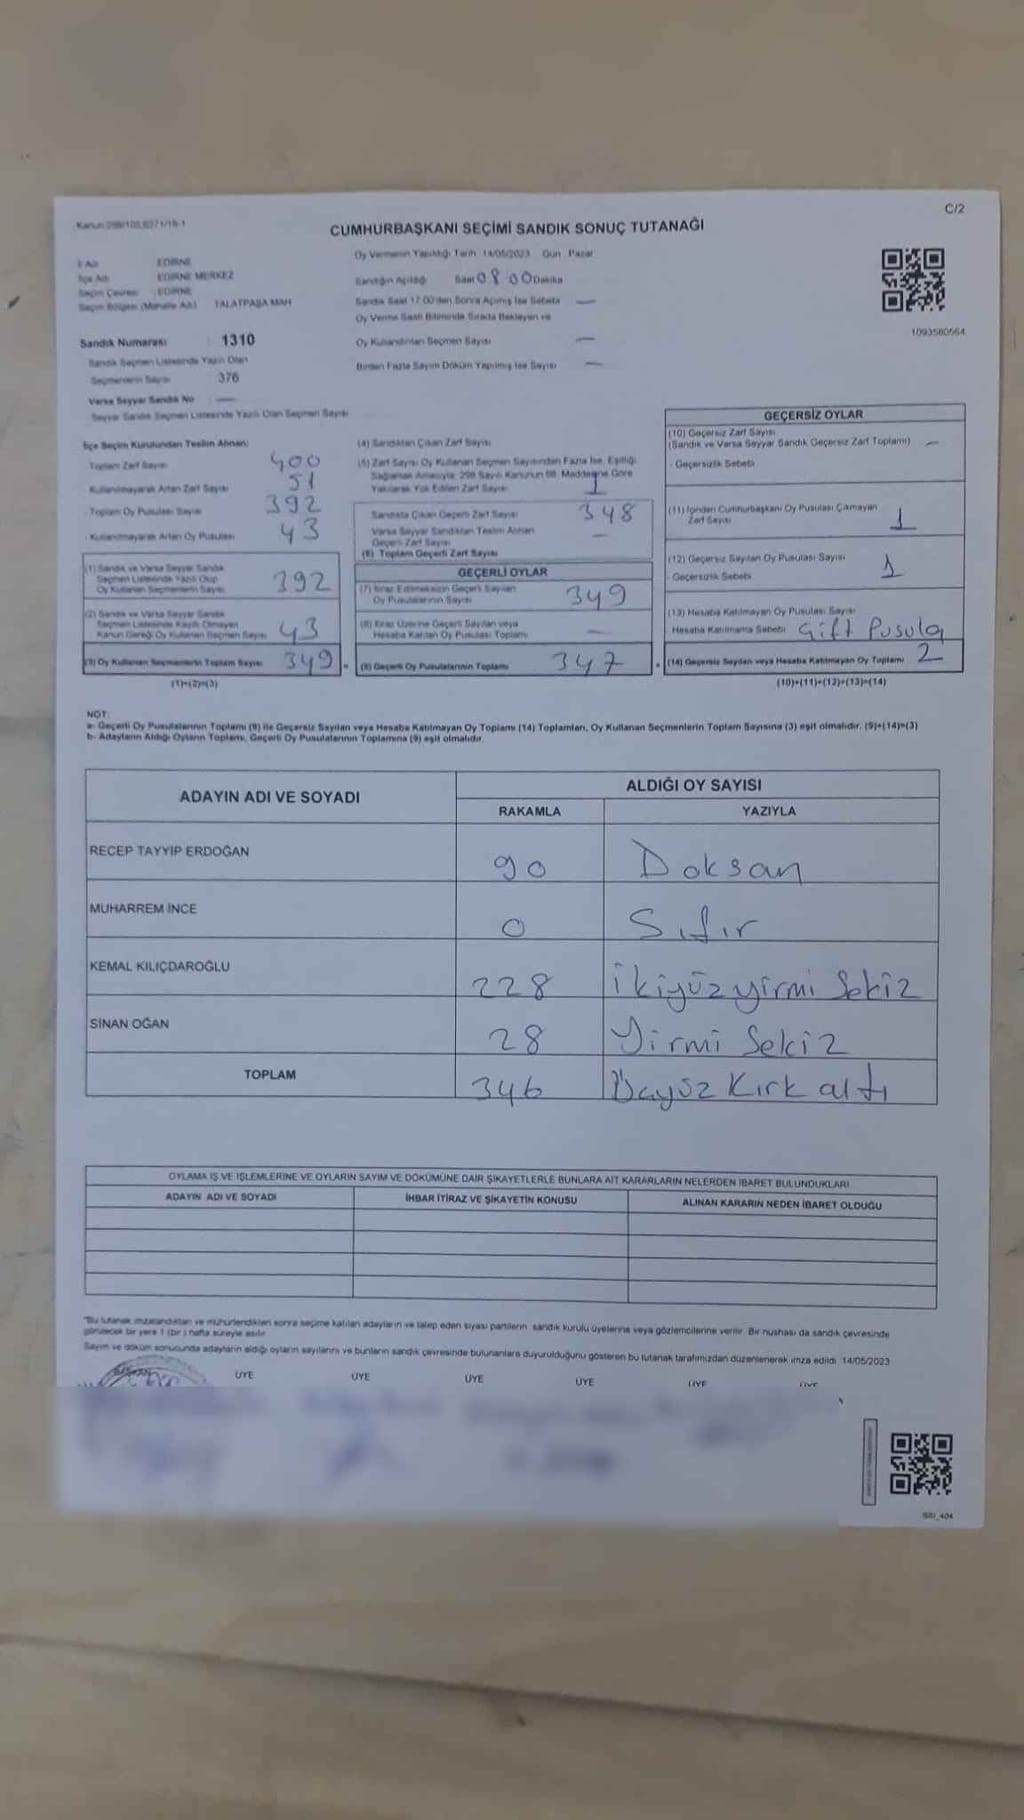 C/2
Kanun 298/105,6271/18-1
CUMHURBAŞKANI SEÇİMİ SANDIK SONUÇ TUTANAĞI
İl Adı EDİRNE
İlçe Adı EDİRNE MERKEZ
Seçim Çevresi EDİRNE
Seçim Bölgesi (Mahalle Adı) TALATPAŞA MAH
Oy Vermenin Yapıldığı Tarih 14/05/2023 Gün Pazar
Sandığın Açıldığı Saat 08 00 Dakika
Sandık Saat 17:00'den Sonra Açımış İse Sebebi —
Oy Verme Saati Bitiminde Sırada Bekleyen ve
Oy Kullandırılan Seçmen Sayısı —
Birden Fazla Sayım Döküm Yapılmış İse Sayısı —
1093580564
Sandık Numarası 1310
Sandık Seçmen Listesinde Yazılı Olan
Seçmenlerin Sayısı 376
Varsa Seyyar Sandık No —
Seyyar Sandık Seçmen Listesinde Yazılı Olan Seçmen Sayısı
İlçe Seçim Kurulundan Teslim Alınan:
Toplam Zarf Sayısı 400
- Kullanılmayarak Artan Zarf Sayısı 51
- Toplam Oy Pusulası Sayısı 392
- Kullanılmayarak Artan Oy Pusulası 43
(1) Sandık ve Varsa Seyyar Sandık
Seçmen Listesinde Yazılı Olup
Oy Kullanan Seçmenlerin Sayısı 392
(2) Sandık ve Varsa Seyyar Sandık
Seçmen Listesinde Kayıtlı Olmayan
Kanun Gereği Oy Kullanan Seçmen Sayısı 43
(3) Oy Kullanan Seçmenlerin Toplam Sayısı 349
(1)+(2)=(3)
(4) Sandıktan Çıkan Zarf Sayısı
(5) Zarf Sayısı Oy Kullanan Seçmen Sayısından Fazla İse, Eşitliği
Sağlamak Amacıyla, 298 Sayılı Kanunun 98. Maddesine Göre
Yakılarak Yok Edilen Zarf Sayısı 1
Sandıkta Çıkan Geçerli Zarf Sayısı 348
Varsa Seyyar Sandıktan Teslim Alınan
Geçerli Zarf Sayısı —
(6) Toplam Geçerli Zarf Sayısı
GEÇERLİ OYLAR
(7) İtiraz Edilmeksizin Geçerli Sayılan
Oy Pusulalarının Sayısı 349
(8) İtiraz Üzerine Geçerli Sayılan veya
Hesaba Katılan Oy Pusulası Toplamı —
(9) Geçerli Oy Pusulalarının Toplamı 347
GEÇERSİZ OYLAR
(10) Geçersiz Zarf Sayısı
(Sandık ve Varsa Seyyar Sandık Geçersiz Zarf Toplamı) —
- Geçersizlik Sebebi
(11) İçinden Cumhurbaşkanı Oy Pusulası Çıkmayan
Zarf Sayısı 1
(12) Geçersiz Sayılan Oy Pusulası Sayısı 1
- Geçersizlik Sebebi
(13) Hesaba Katılmayan Oy Pusulası Sayısı
Hesaba Katılmama Sebebi Çift Pusula
(14) Geçersiz Sayılan veya Hesaba Katılmayan Oy Toplamı 2
(10)+(11)+(12)+(13)=(14)
NOT:
a- Geçerli Oy Pusulalarının Toplamı (9) ile Geçersiz Sayılan veya Hesaba Katılmayan Oy Toplamı (14) Toplamları, Oy Kullanan Seçmenlerin Toplam Sayısına (3) eşit olmalıdır. (9)+(14)=(3)
b- Adayların Aldığı Oyların Toplamı, Geçerli Oy Pusulalarının Toplamına (9) eşit olmalıdır.
ADAYIN ADI VE SOYADI ALDIĞI OY SAYISI
RAKAMLA YAZIYLA
RECEP TAYYİP ERDOĞAN 90 Doksan
MUHARREM İNCE 0 Sıfır
KEMAL KILIÇDAROĞLU 228 İkiyüzyirmi Sekiz
SİNAN OĞAN 28 Yirmi Sekiz
TOPLAM 346 Üçyüz Kırk altı
OYLAMA İŞ VE İŞLEMLERİNE VE OYLARIN SAYIM VE DÖKÜMÜNE DAİR ŞİKAYETLERLE BUNLARA AİT KARARLARIN NELERDEN İBARET BULUNDUKLARI
ADAYIN ADI VE SOYADI İHBAR İTİRAZ VE ŞİKAYETİN KONUSU ALINAN KARARIN NEDEN İBARET OLDUĞU
"Bu tutanak imzalandıktan ve mühürlendikten sonra seçime katılan adayların ve talep eden siyasi partilerin sandık kurulu üyelerine veya gözlemcilerine verilir. Bir nüshası da sandık çevresinde
görülecek bir yere 1 (bir) hafta süreyle asılır.
Sayım ve döküm sonucunda adayların aldığı oyların sayılarını ve bunların sandık çevresinde bulunanlara duyurulduğunu gösteren bu tutanak tarafımızdan düzenlenerek imza edildi. 14/05/2023
ÜYE ÜYE ÜYE ÜYE ÜYE ÜYE